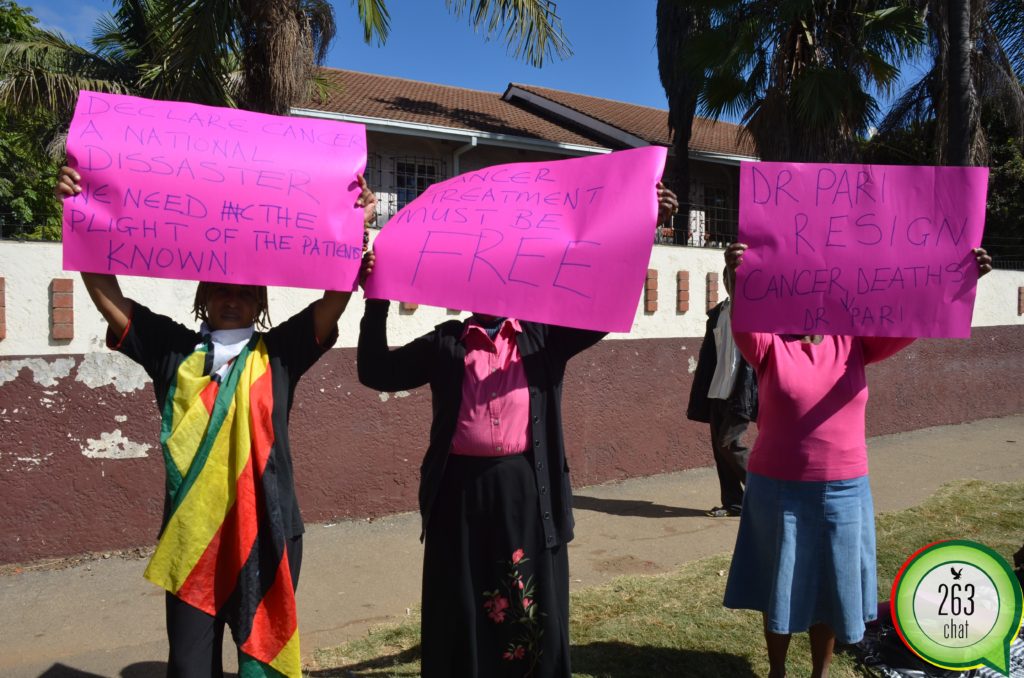 DECLARE CANCER
A NATIONAL
DISSASTER
WE NEED THE
PLIGHT OF THE PATIENTS
KNOWN.
CANCER
TREATMENT
MUST BE
FREE
DR PARI
RESIGN
CANCER DEATHS
DR PARI
263
chat